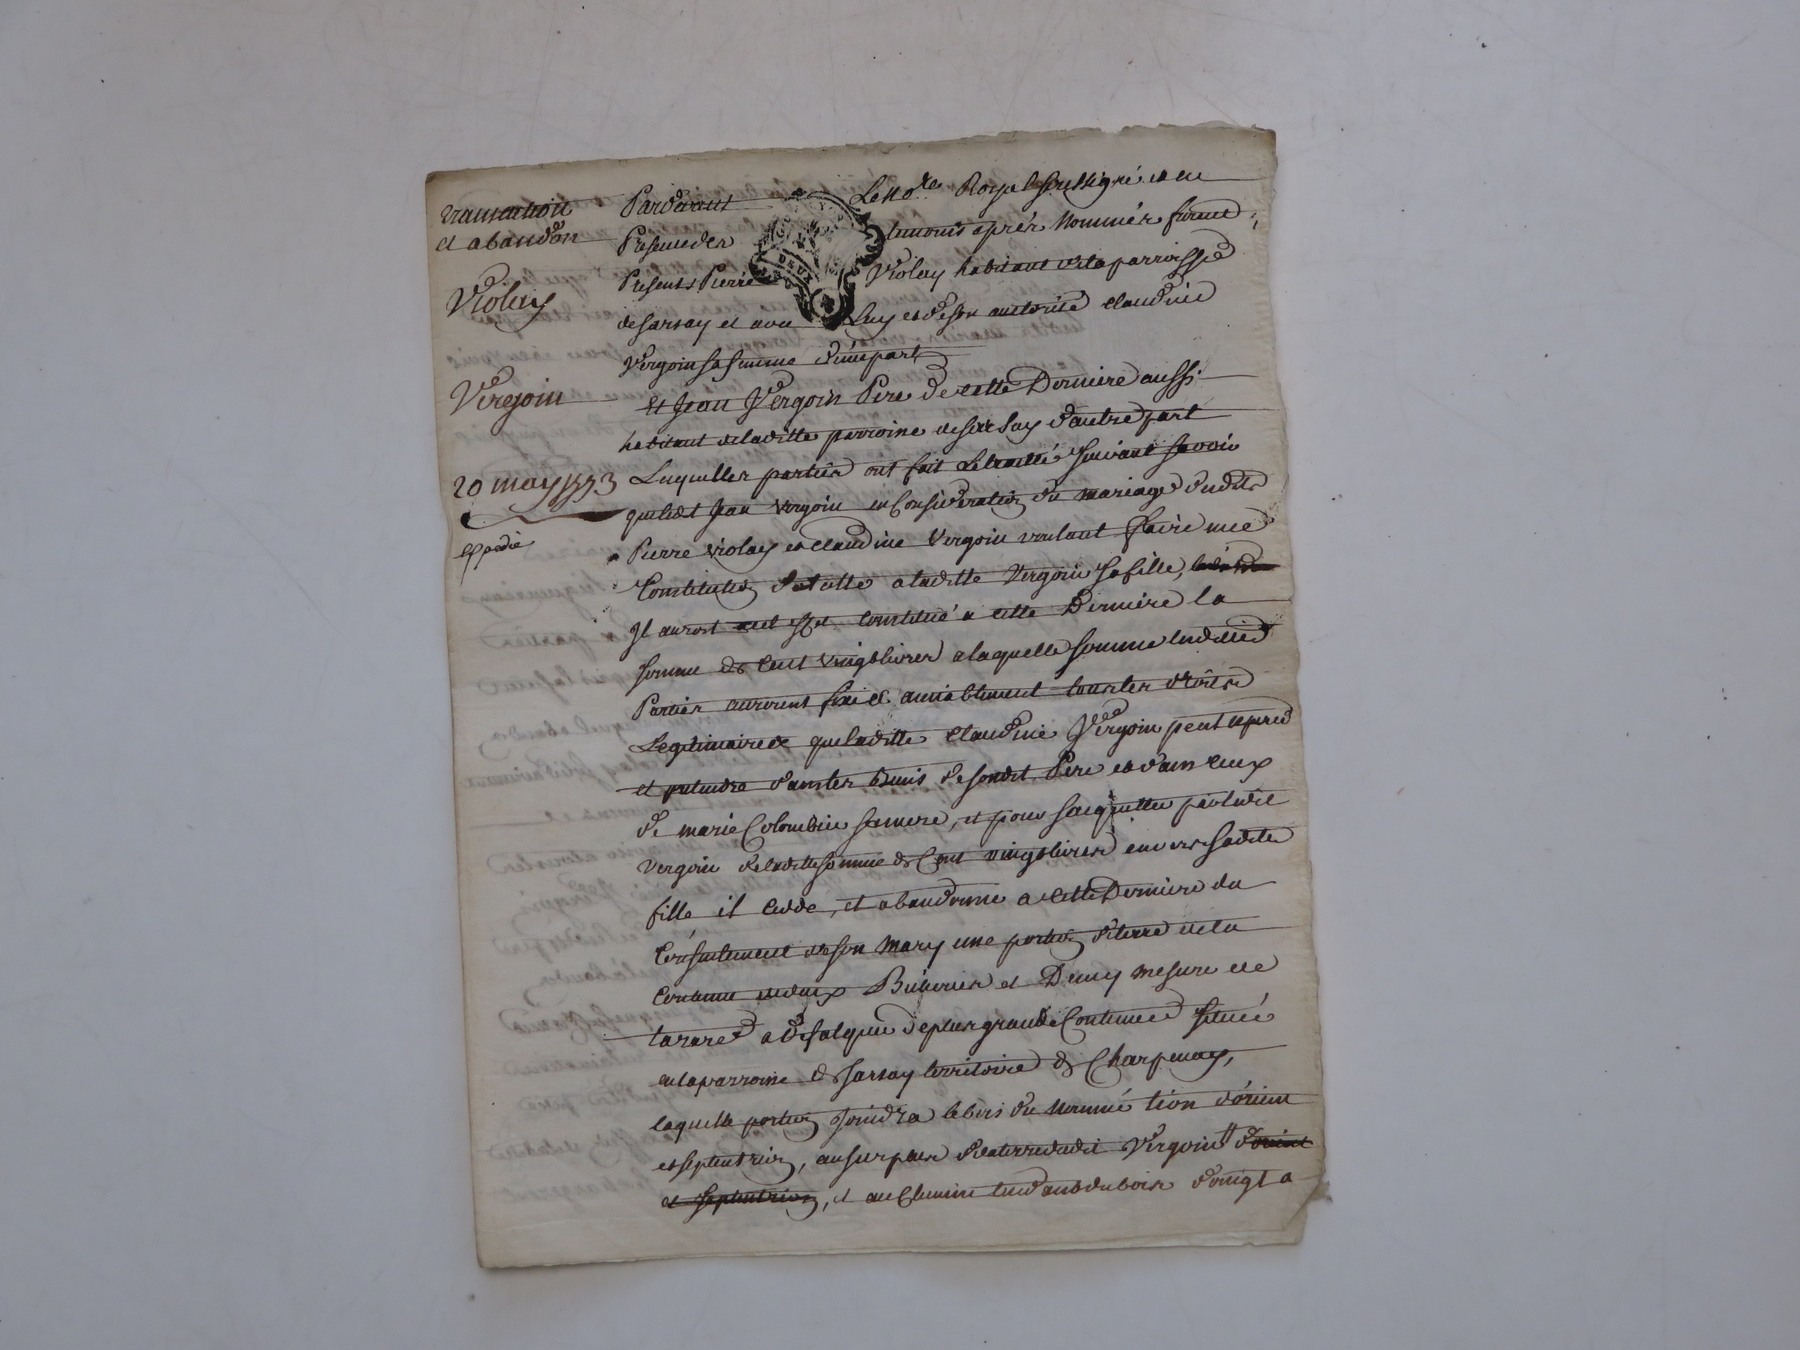 transaction
et abandon
Violay
Vergoin
20 may 1773
Expedié
Pardevant Le No.re Royal soussigné et en
Presence des temoins aprés Nommés furent
Presents Pierre Violay habitant de la parroisse
de Sarsay et avec Luy et de son autorité Claudine
Vergoin sa femme d'une part
et Jean Vergoin Pere de cette Derniere aussi
habitant de laditte parroisse de Sarsay d'autre part
Lesquelles parties ont fait le traitté suivant savoir
que ledit Jean Vergoin en Consideration du mariage dudit
Pierre Violay et Claudine Vergoin voulant faire une
Constitution a laditte Vergoin sa fille,
Il auroit constitué a cette Derniere la
somme de Cent vingt livres a laquelle somme lesdites
Parties auroient fixé amiablement tous les droits
Legitimaires que laditte Claudine Vergoin peut esperer
et pretendre dans les biens de son dit Pere et dans ceux
de marie Colombin sa mere, et pour s'acquitter par ledit
Vergoin de laditte somme de Cent vingt livres envers saditte
fille il cedde, et abandonne a cette Derniere du
Consentement de son Mary une portion de terre de la
Contenue de deux Bicherées et Demy mesure de
tarare a defalquer de plus grande Contenue située
en la parroisse de Sarsay territoire de Charpenay,
laquelle portion joindra le bois du Nommé tion d'orient
et septentrion, au surplus de la terre dudit Vergoin d'orient
et septentrion, et au Chemin tendant du bois d'oingt a